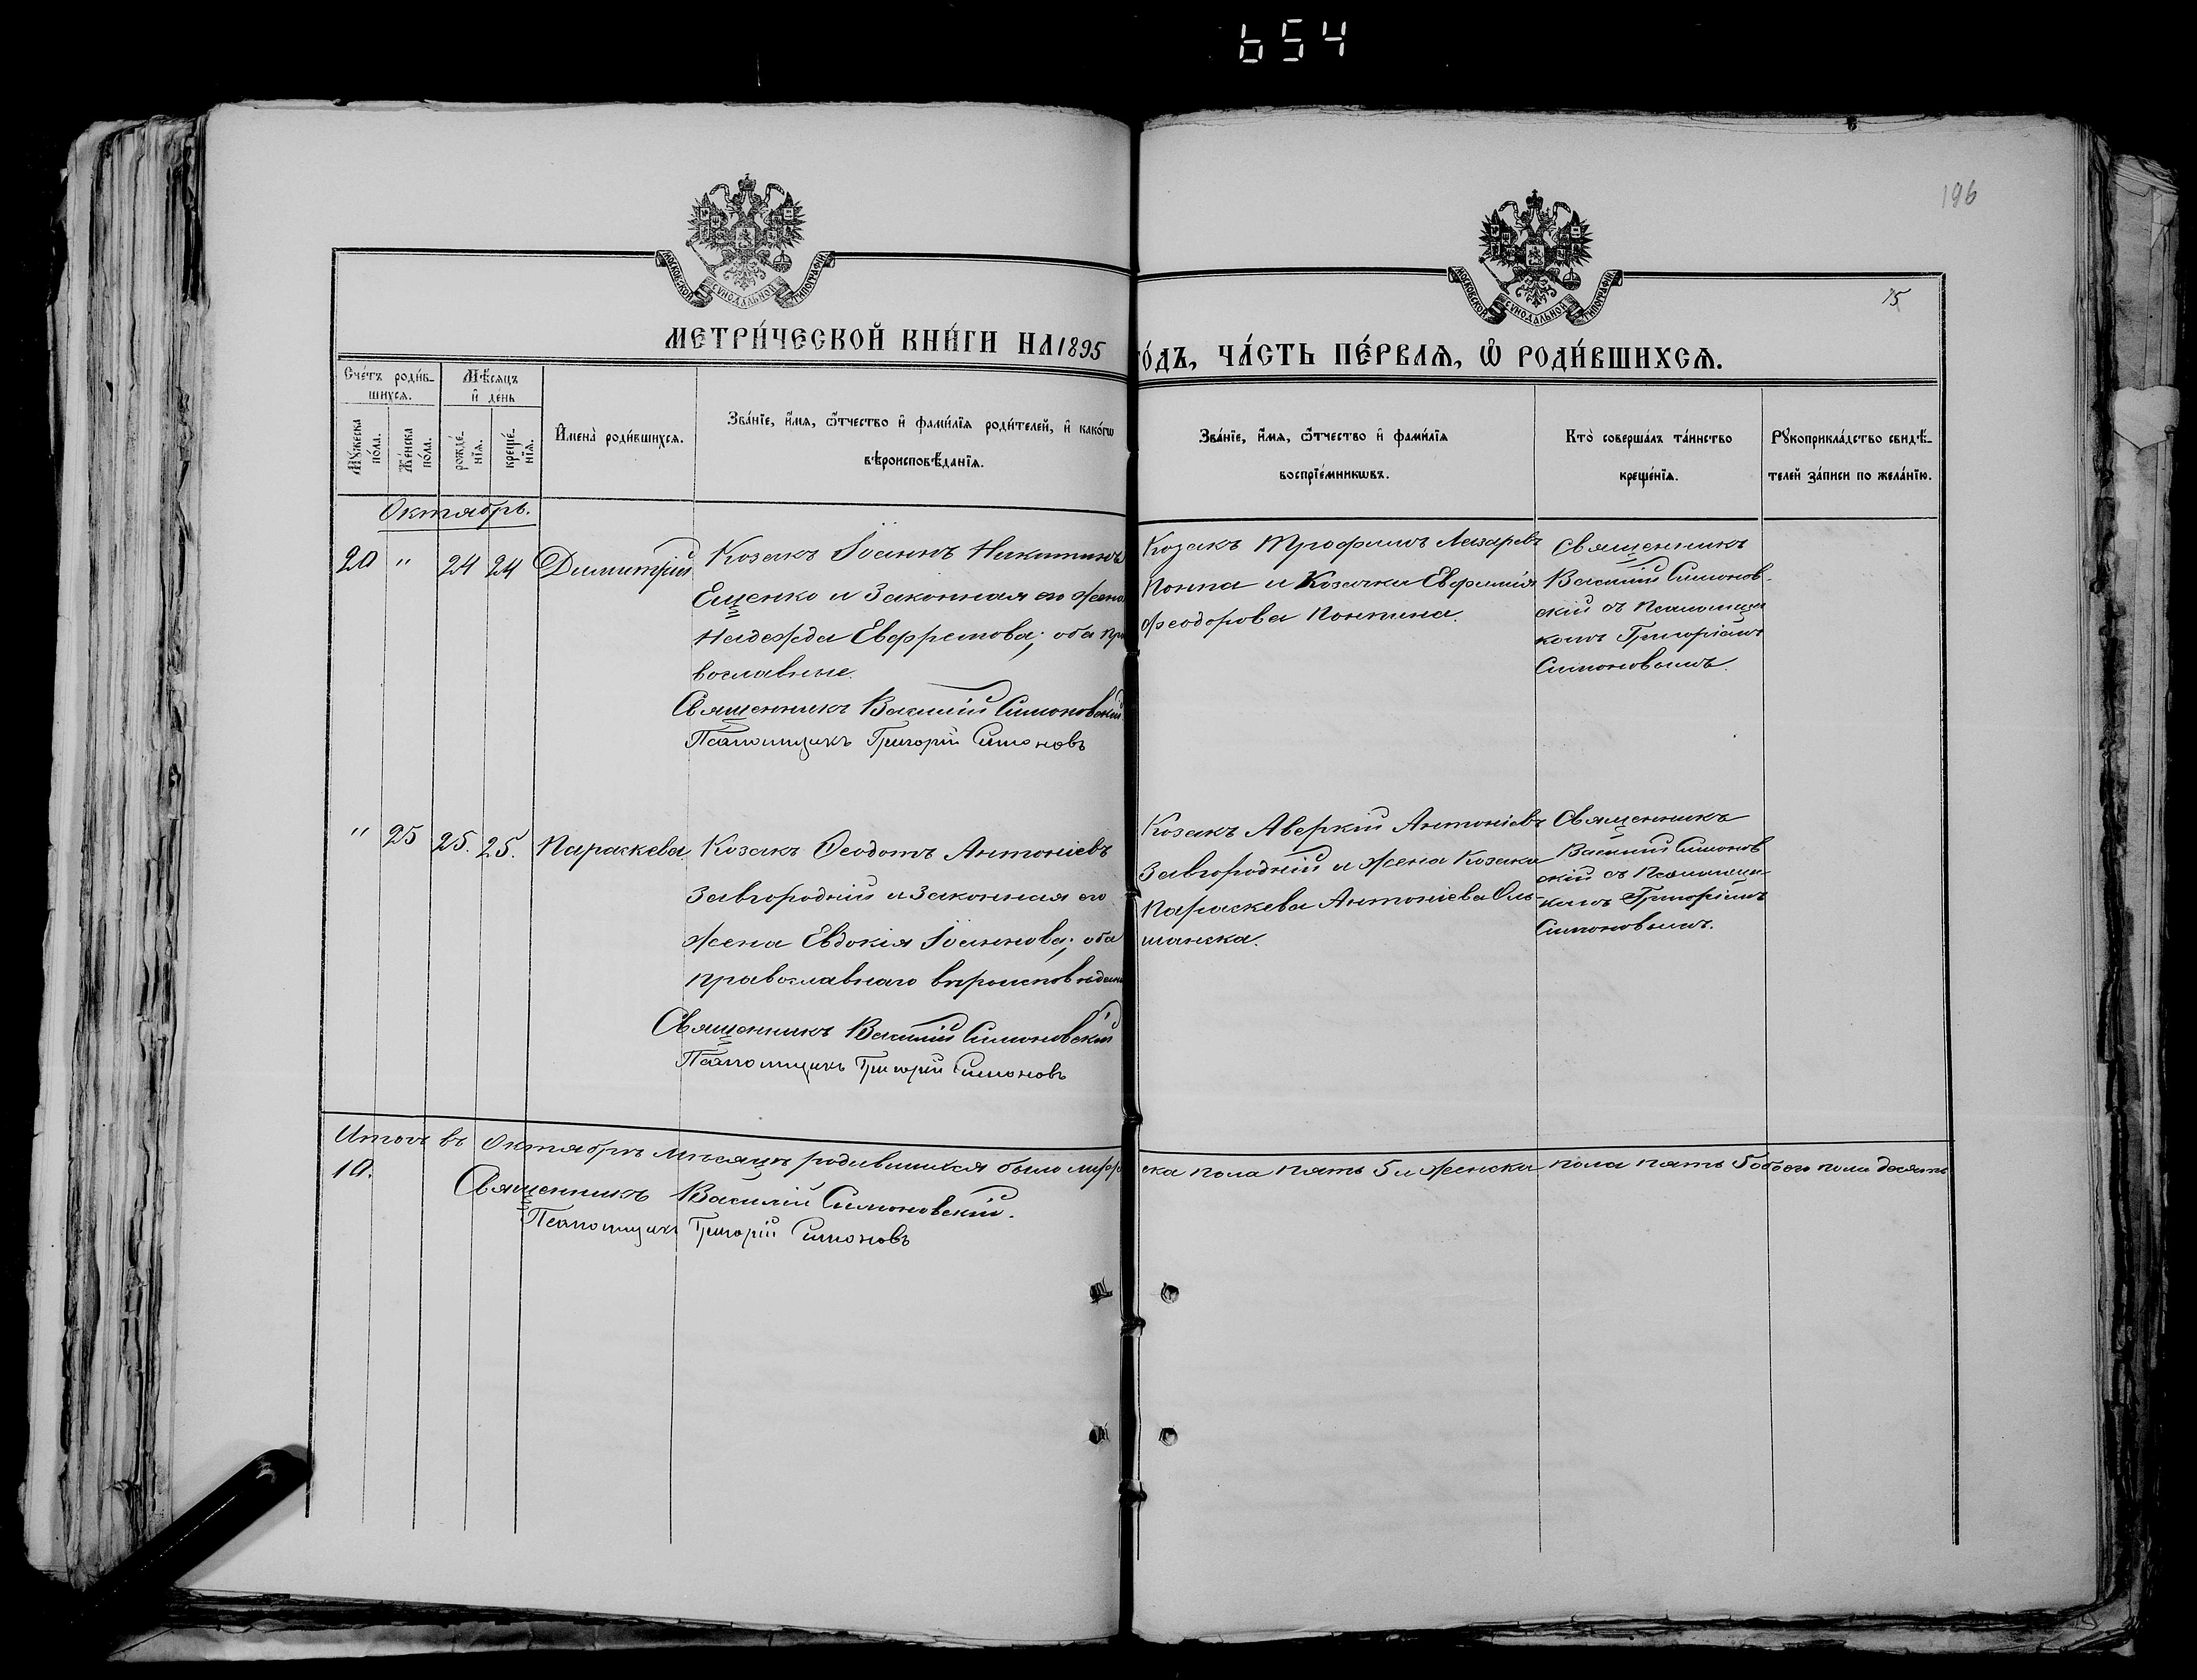 654
196
15
МОСКОВСКОЙ СУНОДАЛЬНОЙ ТИПОГРАФІИ
МОСКОВСКОЙ СУНОДАЛЬНОЙ ТИПОГРАФІИ
МЕТРИ́ЧЕСКОЙ КНИ́ГИ НА 1895
ГО́ДЪ, ЧА́СТЬ ПЕ́РВАѦ, Ѽ РОДИ́ВШИХСѦ.
Сче́тъ роди́в-
шихсѧ.
Мѣ́сяцъ
и҆ де́нь
Мꙋ́жеска
по́ла.
Же́нска
по́ла.
рожде́-
нїѧ.
креще́-
нїѧ.
И҆мена̀ роди́вшихсѧ.
Зва́нїе, и҆́мѧ, ѻ҆́тчество и҆ фами́лїѧ роди́телей, и҆ како́гѡ
вѣроисповѣ́данїѧ.
Зва́нїе, и҆́мѧ, ѻ҆́тчество и҆ фами́лїѧ
воспрїе́мникѡвъ.
Кто̀ соверша́лъ та́инство
креще́нїѧ.
Рꙋкоприкла́дство свидѣ́-
телей за́писи по жела́нїю.
Октябрь.
20 " 24 24 Димитрій
Козакъ Іоаннъ Никитинъ
Ещенко и законная его жена
Надежда Евфремова; оба пра
вославные.
Священникъ Василій Симоновскій
Псаломщикъ Григорій Симоновъ
Козакъ Трофимъ Лазаревъ
Понпа и Козачка Евфимія
Феодорова Понпина.
Священникъ
Василій Симонов-
скій съ Псаломщи
комъ Григоріемъ
Симоновымъ.
" 25 25. 25. Параскева
Козакъ Феодотъ Антоніевъ
Завгородній и законная его
жена Евдокія Іоаннова; оба
православнаго вѣроисповѣдані
Священникъ Василій Симоновскій
Псаломщикъ Григорій Симоновъ
Козакъ Аверкій Антоніевъ
Завгородній и жена Козака
Параскева Антоніева Оль
шанска.
Священникъ
Василій Симонов
скій съ Псаломщи-
комъ Григоріемъ
Симоновымъ.
Итогъ въ Октябрѣ мѣсяцѣ родившихся было муже ска пола пять 5 и женска пола пять 5 обоего пола десять
10.
Священникъ Василій Симоновскій.
Псаломщикъ Григорій Симоновъ